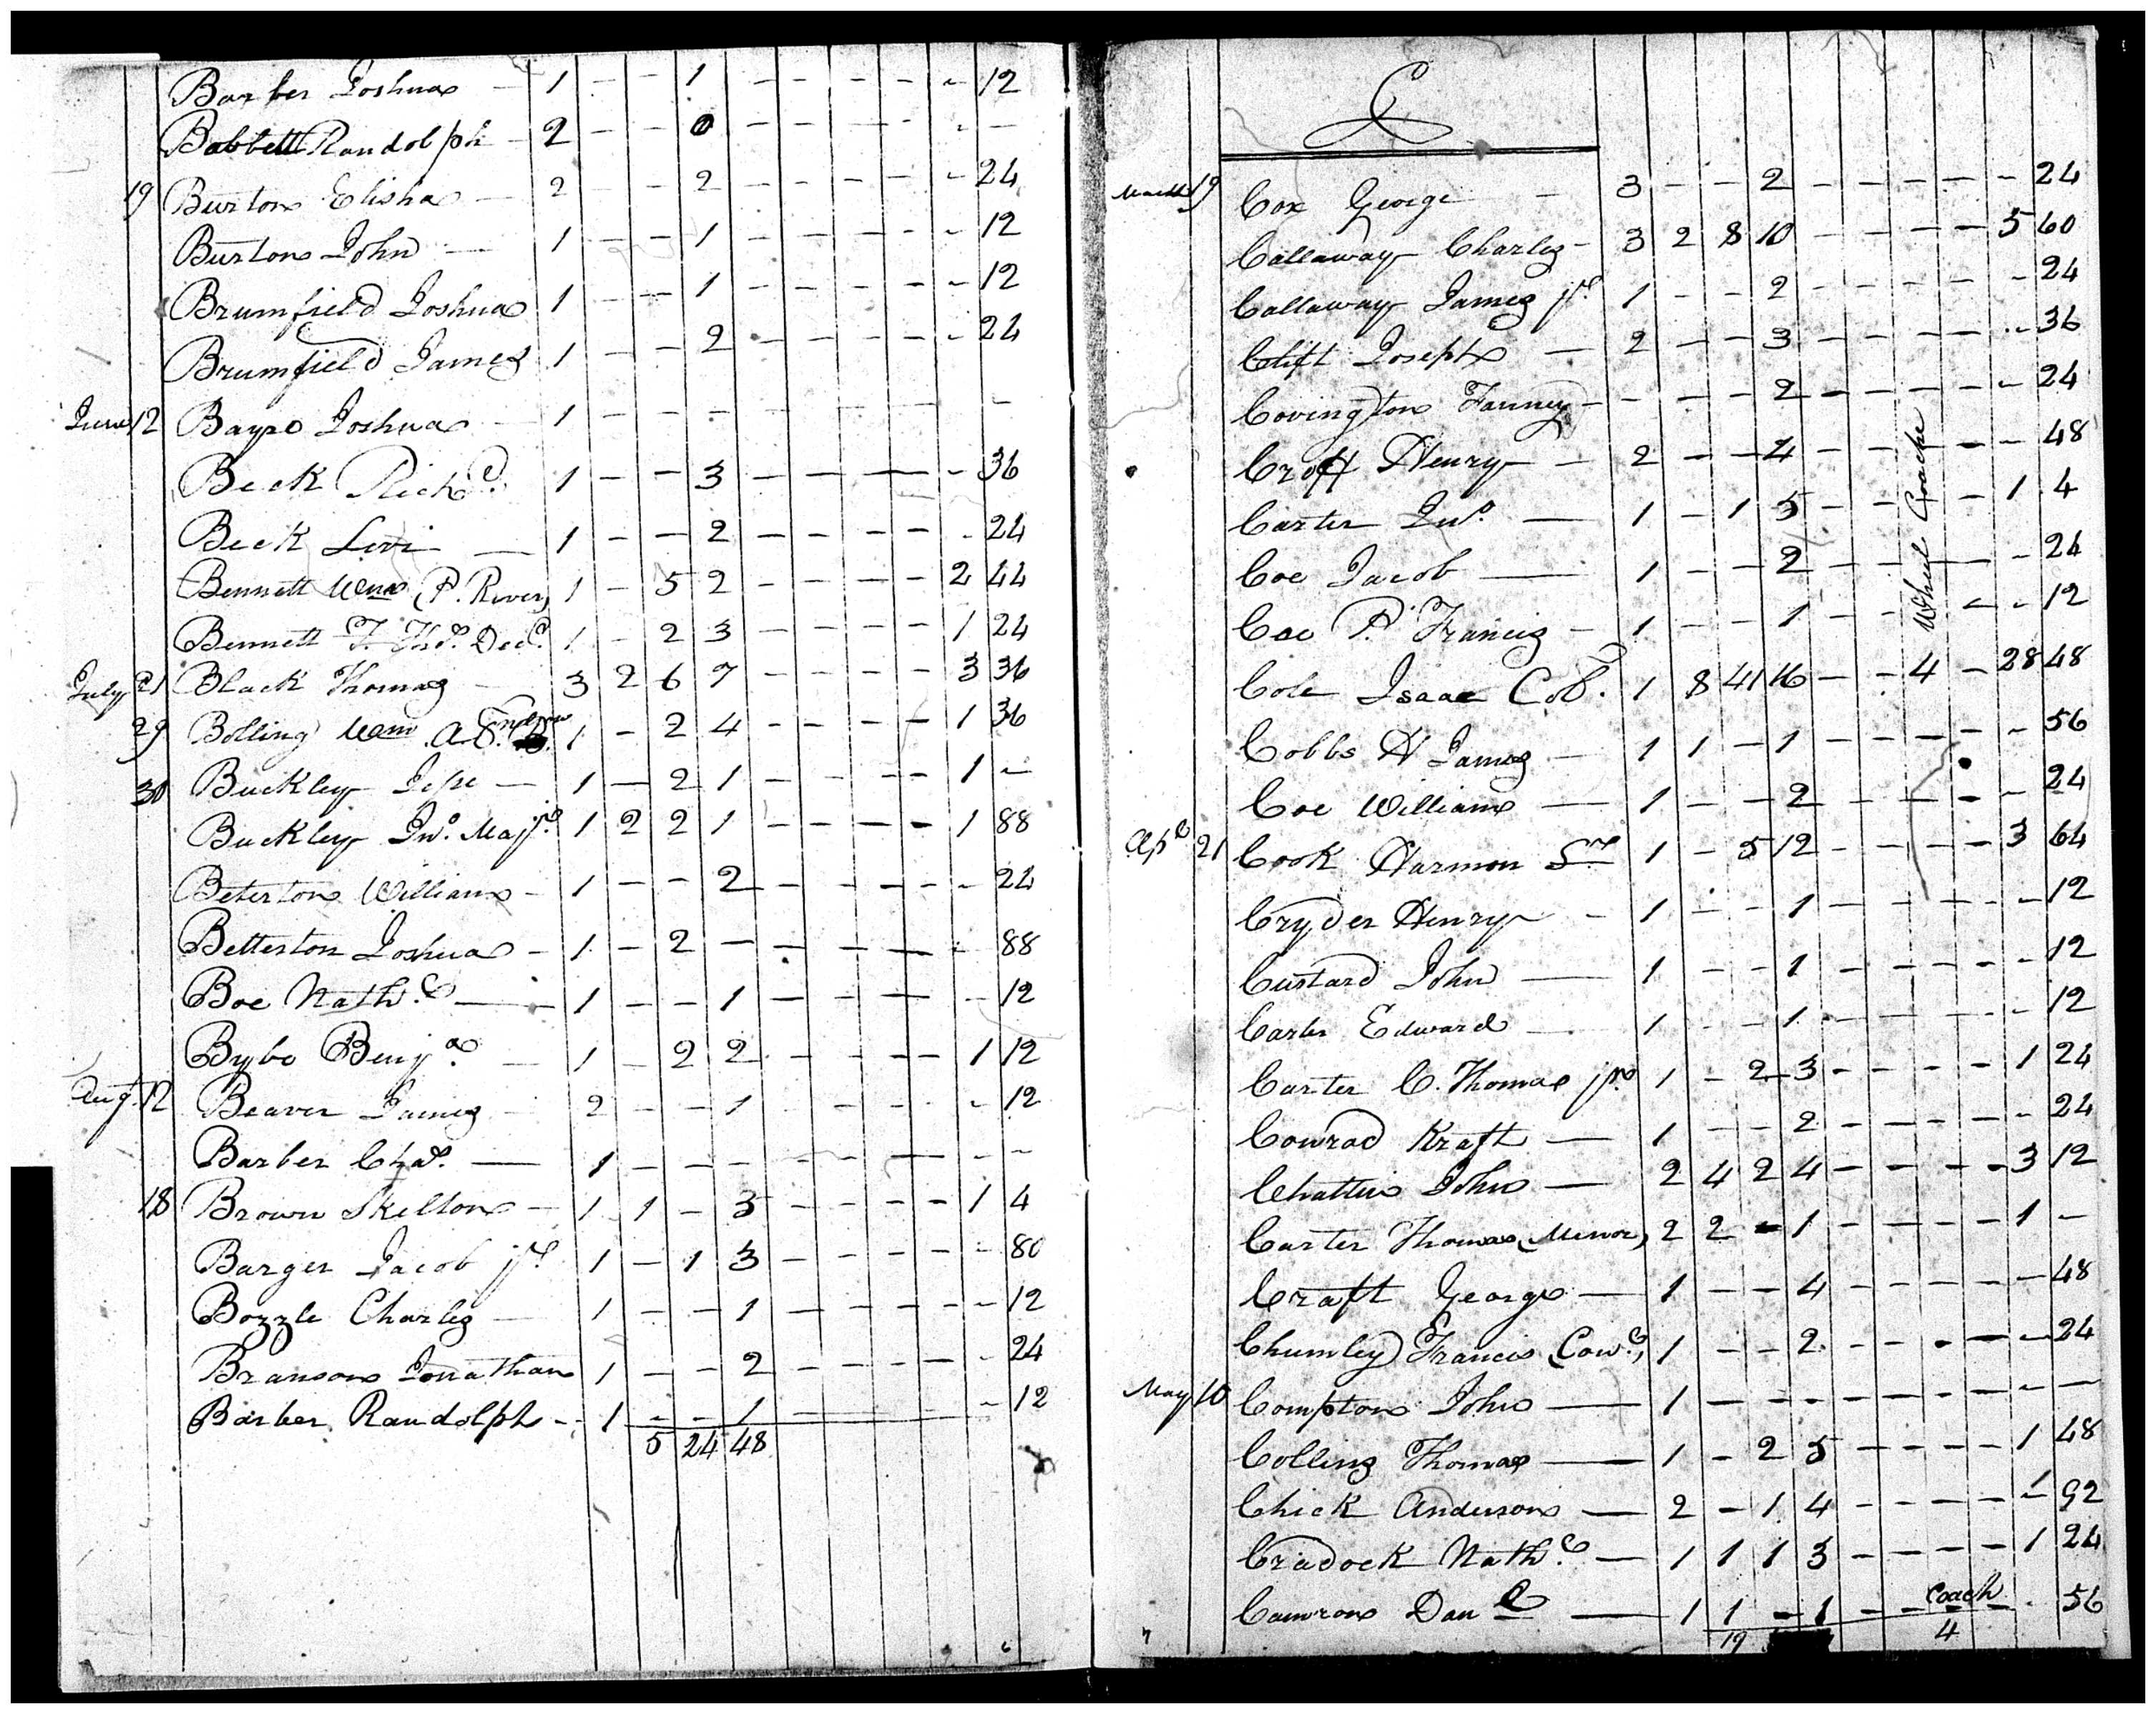 Barber Joshua - 1 - - 1 - - - - - 12
Babbett Randolph - 2 - - 0 - - - - - -
19 Burton Elisha - 2 - - 2 - - - - - 24
Burton John - 1 - - 1 - - - - - 12
Brumfield Joshua 1 - - 1 - - - - - 12
Brumfield James 1 - - 2 - - - - - 24
June 12 Bayse Joshua - 1 - - - - - - - - -
Beck Richd. 1 - - 3 - - - - - 36
Beck Levi - 1 - - 2 - - - - - 24
Bennett Wm (P. River) 1 - 5 2 - - - - 2 44
Bennett T. Thos. Decd. 1 - 2 3 - - - - 1 24
July 21 Black Thomas - 3 2 6 7 - - - - 3 36
29 Bolling Wm 1 - 2 4 - - - - 1 36
30 Buckley Jesse - 1 - 2 1 - - - - 1 -
Buckley Jno. Majr. 1 2 2 1 - - - - 1 88
Beterton William - 1 - - 2 - - - - - 24
Betterston Joshua - 1 - 2 - - - - - - 88
Boe Nathl. - 1 - - 1 - - - - - 12
Bybe Benja. - 1 - 2 2 - - - - 1 12
Augt. 12 Beaver James - 2 - - 1 - - - - - 12
Barber Chas. - 1 - - - - - - - - -
18 Brown Skelton - 1 1 - 3 - - - - 1 4
Barger Jacob jr. 1 - 1 3 - - - - - 80
Bozzle Charles - 1 - - 1 - - - - - 12
Branson Jonathan 1 - - 2 - - - - - 24
Barber Randolph - 1 - - 1 - - - - - 12
5 24 48
6
C
March 19 Cox George - 3 - - 2 - - - - - 24
Callaway Charles - 3 2 8 10 - - - - 5 60
Callaway James jr. 1 - - 2 - - - - - 24
Clift Joseph - 2 - - 3 - - - - - 36
Covington Fanney - - - - 2 - - - - - 24
Croff Henry - 2 - - 4 - - - - - 48
Carter Jno. - 1 - 1 5 - - - - 1 4
Coe Jacob - 1 - - 2 - - - - - 24
Coe P. Francis - 1 - - 1 - - - - - 12
Wheel Coache
Cole Isaac Col. 1 8 41 16 - - 4 - 28 48
Cobbs H James - 1 1 - 1 - - - - - 56
Coe William - 1 - - 2 - - - - - 24
Apl 21 Cook Harmon Sr 1 - 5 12 - - - - 3 64
Cryder Henry - 1 - - 1 - - - - - 12
Custard John - 1 - - 1 - - - - - 12
Carter Edward - 1 - - 1 - - - - - 12
Carter C. Thomas jr. 1 - 2 3 - - - - 1 24
Conrad Kraft - 1 - - 2 - - - - - 24
Chattin John - 2 4 2 4 - - - - 3 12
Carter Thomas (Minor) 2 2 - 1 - - - - 1 -
Craft George - 1 - - 4 - - - - - 48
Chumley Francis (Con.) 1 - - 2 - - - - - 24
May 10 Compton John - 1 - - - - - - - - -
Colling Thomas - 1 - 2 5 - - - - 1 48
Chick Anderson - 2 - 1 4 - - - - - 92
Cradock Nathl. - 1 1 1 3 - - - - 1 24
Camron Danl - 1 1 - 1 - - Coach - - 56
7 19 4